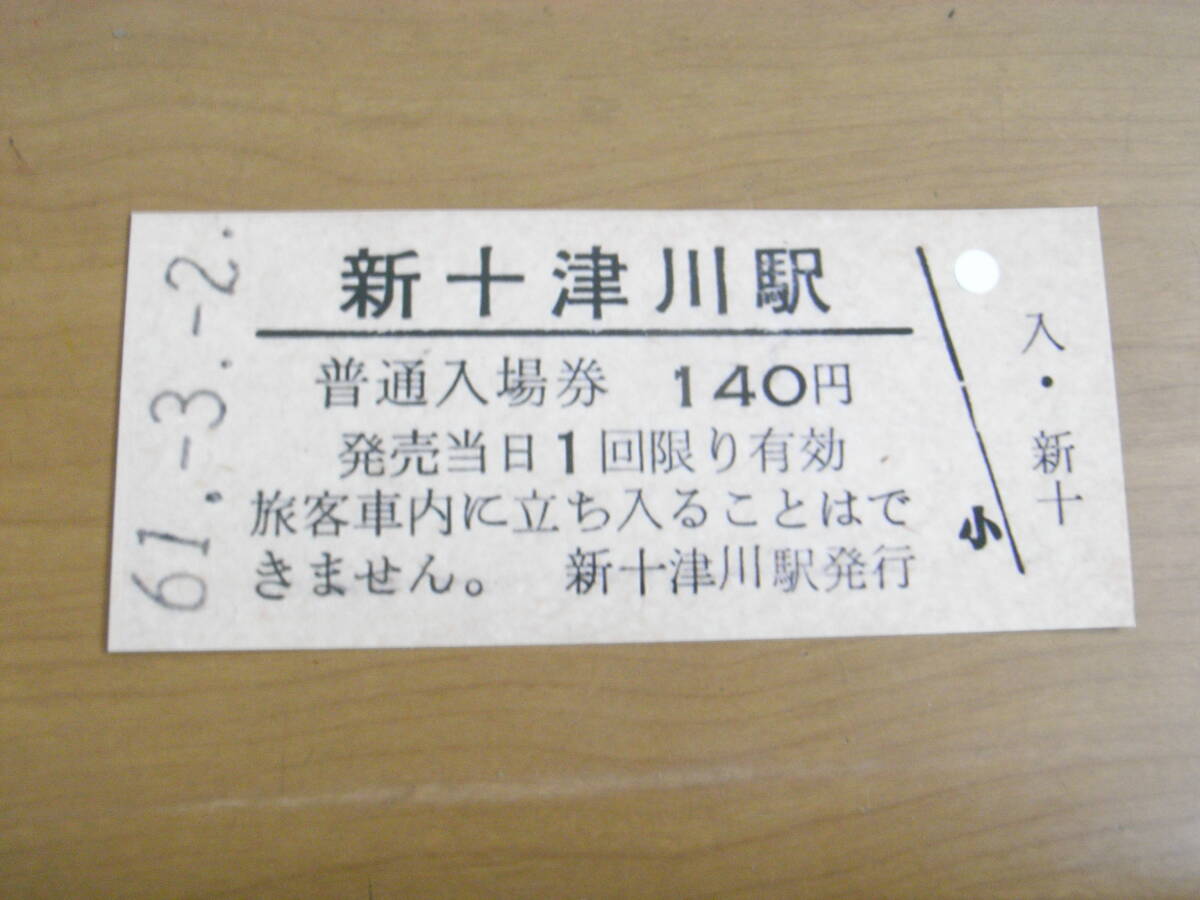 61.-3.-2.
新十津川駅
普通入場券 140円
発売当日1回限り有効
旅客車内に立ち入ることはで
きません。 新十津川駅発行
小
入・新十